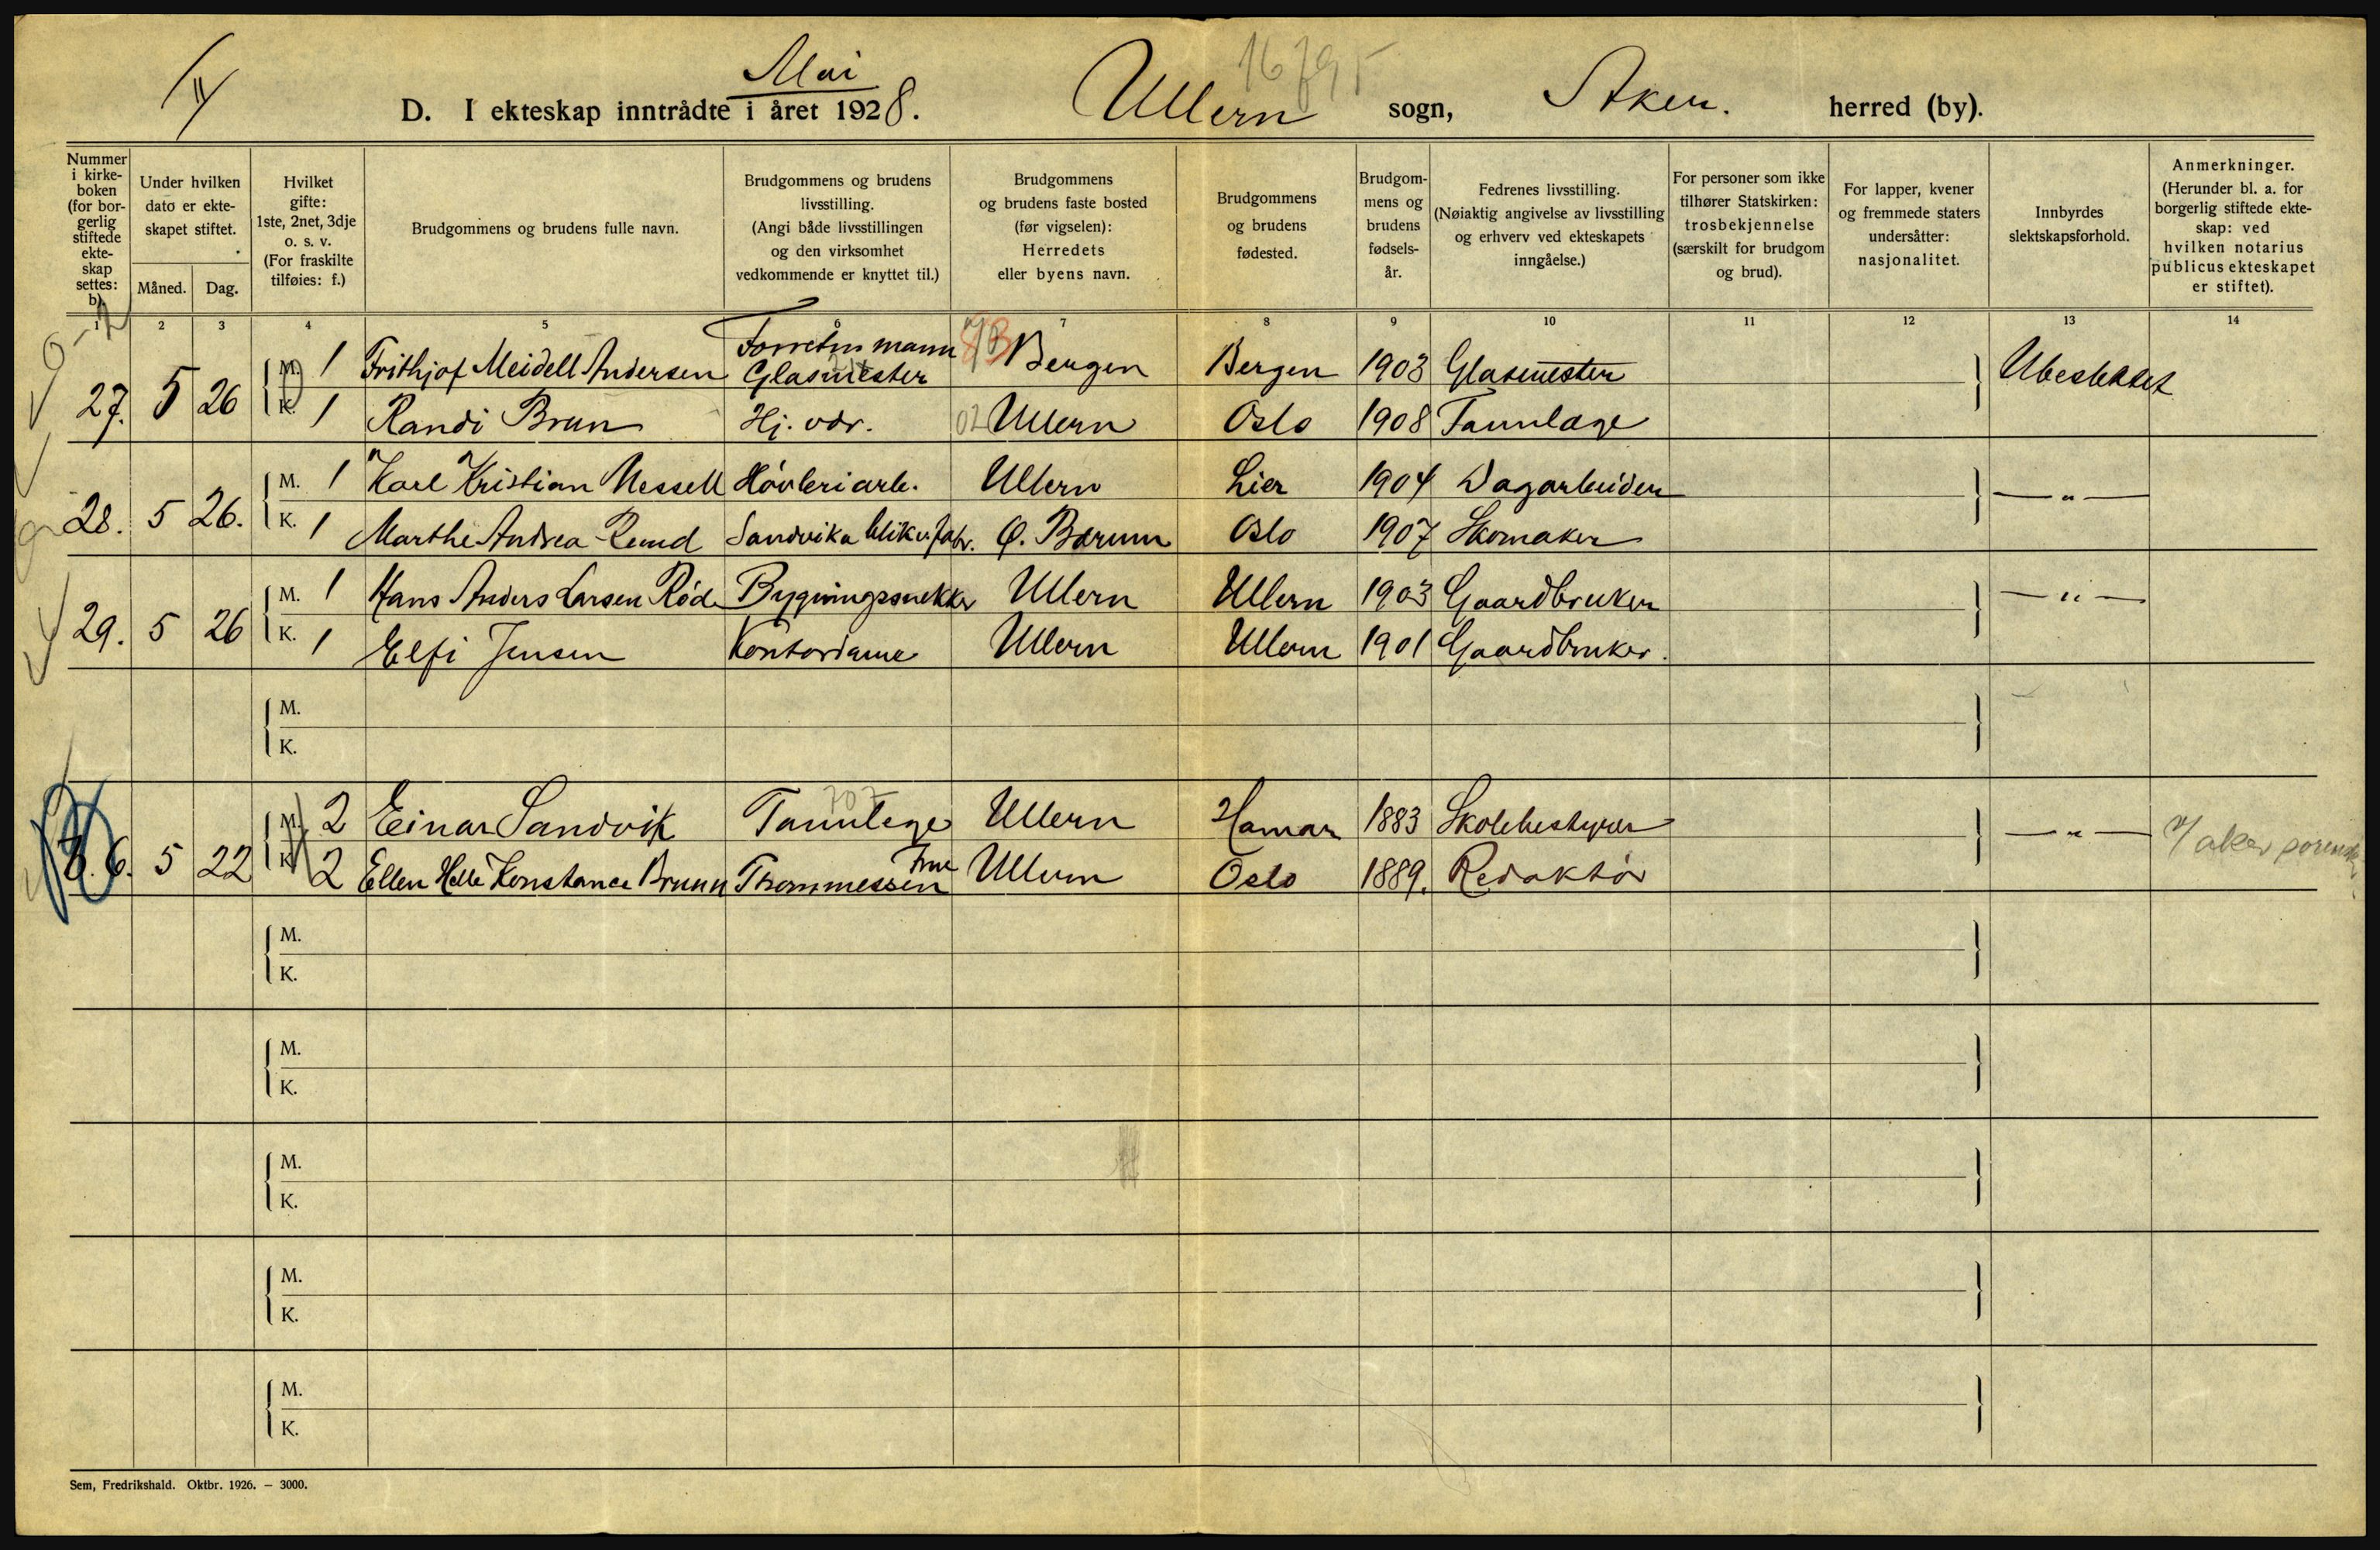 Mai
16795
D. I ekteskap inntrådte i året 1928. Ullern sogn, Aker. herred (by).
Nummer i kirke-boken (for bor-gerlig stiftede ekte-skap settes: b).
Under hvilken dato er ekte-skapet stiftet.
Måned. Dag.
Hvilket gifte: 1ste, 2net, 3dje o. s. v. (For fraskilte tilføies: f.)
Brudgommens og brudens fulle navn.
Brudgommens og brudens livsstilling. (Angi både livsstillingen og den virksomhet vedkommende er knyttet til.)
Brudgommens og brudens faste bosted (før vigselen): Herredets eller byens navn.
Brudgommens og brudens fødested.
Brudgom-mens og brudens fødsels-år.
Fedrenes livsstilling. (Nøiaktig angivelse av livsstilling og erhverv ved ekteskapets inngåelse.)
For personer som ikke tilhører Statskirken: trosbekjennelse (særskilt for brudgom og brud).
For lapper, kvener og fremmede staters undersåtter: nasjonalitet.
Innbyrdes slektskapsforhold.
Anmerkninger. (Herunder bl. a. for borgerlig stiftede ekte-skap: ved hvilken notarius publicus ekteskapet er stiftet).
1 2 3 4 5 6 7 8 9 10 11 12 13 14
Forretn mann
27. 5 26 M. 1 Frithjof Meidell Andersen Glasmester Bergen Bergen 1903 Glasmester Ubeslektet
K. 1 Randi Brun Hj. vdr. 02 Ullern Oslo 1908 Tannlæge
28. 5 26. M. 1 Karl Kristian Nessell Høvleriarb. Ullern Lier 1904 Dagarbeider — " —
K. 1 Marthe Andrea Rund Sandvika blikv.fabr. Ø. Bærum Oslo 1907 Skomaker
29. 5 26 M. 1 Hans Anders Larsen Röd Bygningssnekker Ullern Ullern 1903 Gaardbruker — " —
K. 1 Elfi Jensen Kontordame Ullern Ullern 1901 Gaardbruker.
M.
K.
707
6. 5 22 M. 2 Einar Sandvik Tannlege Ullern Hamar 1883 Skolebestyrer — " —
K. 2 Ellen Helle Konstance Brunn Thommessen Frue Ullern Oslo 1889. Redaktör
M.
K.
M.
K.
M.
K.
M.
K.
M.
K.
Sem, Fredrikshald. Oktbr. 1926. — 3000.